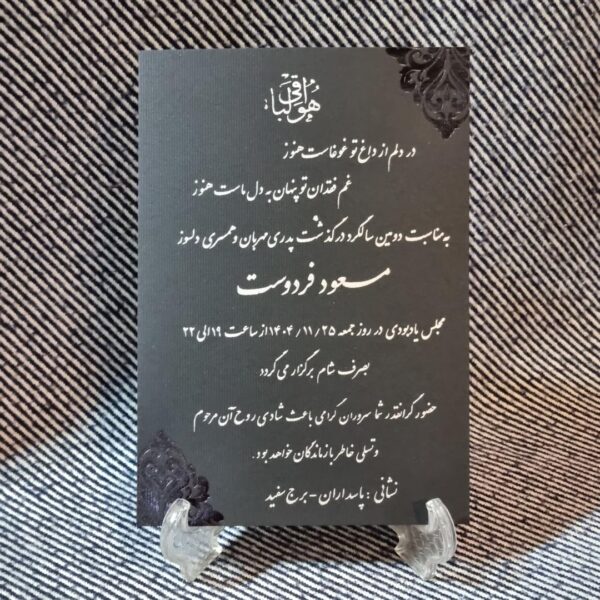 هوالباقی
در دلم از داغ تو غوغاست هنوز
غم فقدان تو پنهان به دل ماست هنوز
به مناسبت دومین سالگرد درگذشت پدری مهربان و همسری دلسوز
مسعود فردوست
مجلس یادبودی در روز جمعه ۱۴۰۴/۱۱/۲۵ از ساعت ۱۹ الی ۲۲
بصرف شام برگزار می گردد
حضور گرانقدر شما سروران گرامی باعث شادی روح آن مرحوم
و تسلی خاطر بازماندگان خواهد بود.
نشانی : پاسداران - برج سفید